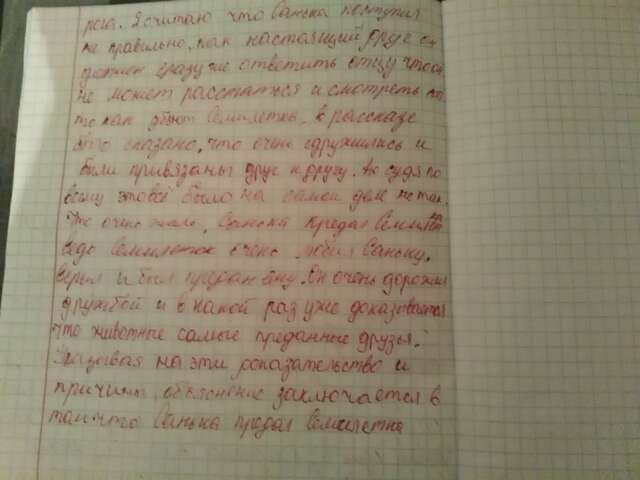 рога. Я считаю что Санька поступил
не правильно, как настоящий друг он
должен сразу же ответить отцу что он
не может расстаться и смотреть на
то как убьют Семилетка. В рассказе
было сказано, что очень сдружились и
были привязаны друг к другу. Но судя по
всему это всё было на самом деле не так.
Что очень жаль, Санька предал Семилет
ведь Семилеток очень любил Саньку,
верил и был предан ему. Он очень дорожил
дружбой и в какой раз уже доказывается
что животные самые преданные друзья.
Указывая на эти доказательство и
причины, объяснение заключается в
том что Санька предал Семилетка